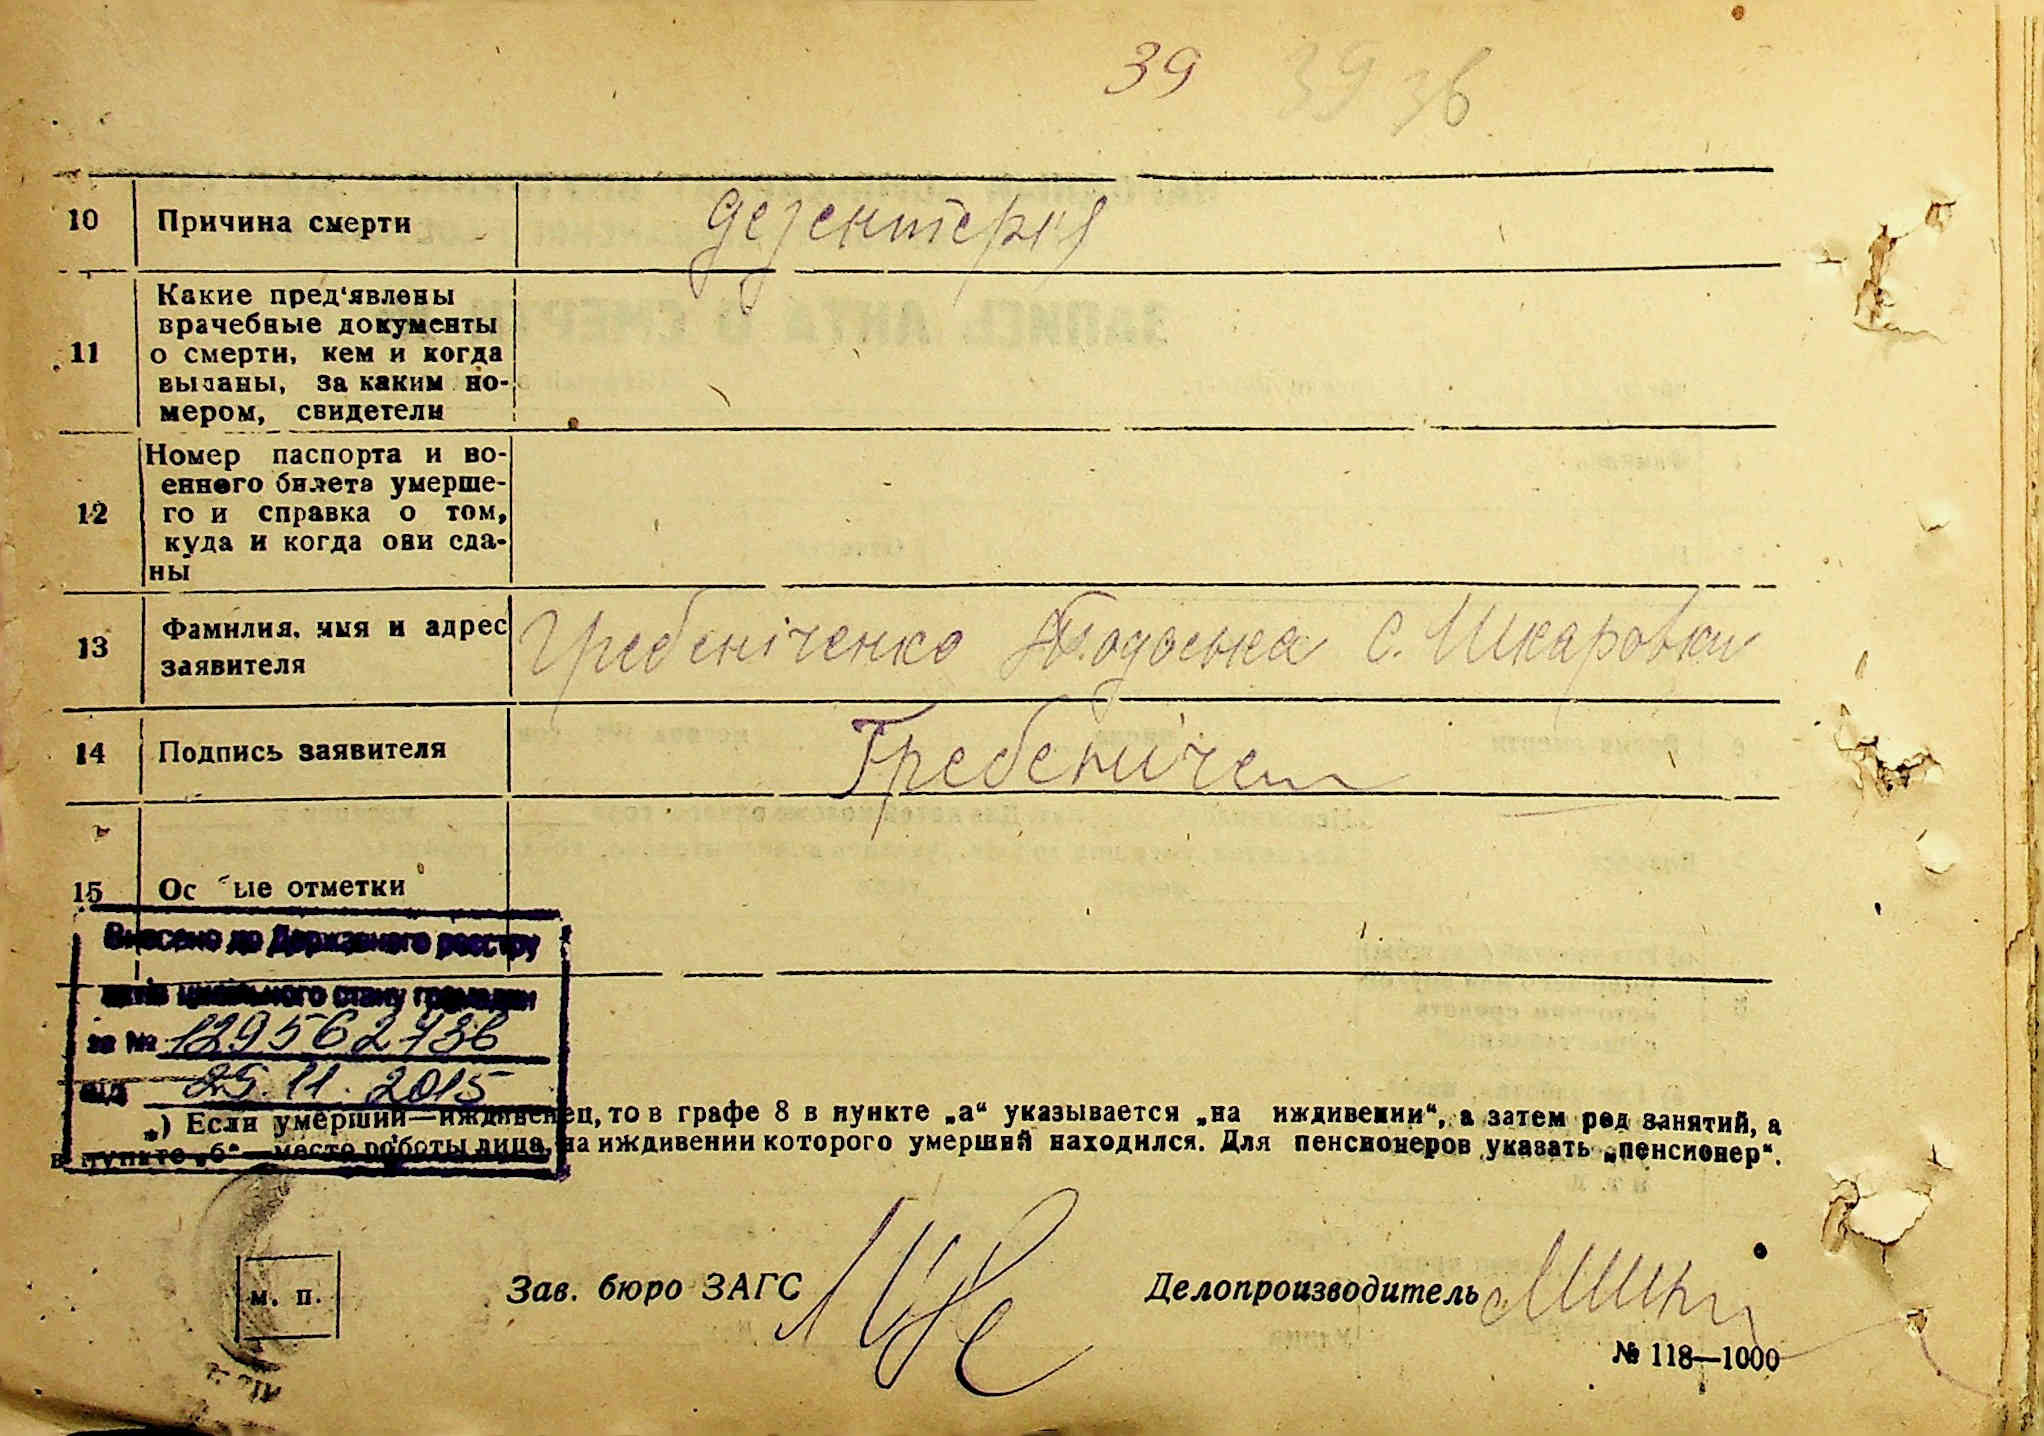 39 39 зв
10 Причина смерти дезентерия
11 Какие пред'явлены
врачебные документы
о смерти, кем и когда
выданы, за каким но-
мером, свидетели
12 Номер паспорта и во-
енного билета умерше-
го и справка о том,
куда и когда они сда-
ны
13 Фамилия, имя и адрес
заявителя
Гребеніченко Тодоська с. Шкаровки
14 Подпись заявителя Гребениче
15 Ос ые отметки
Внесено до Державного реєстру
актів цивільного стану громадян
за № 129562736
від 25.11.2015
*) Если умерший—иждивенец, то в графе 8 в пункте „а“ указывается „на иждивении“, а затем род занятий, а
в пункте „б“—место роботы лица, на иждивении которого умерший находился. Для пенсионеров указать „пенсионер“.
м. п.
Зав. бюро ЗАГС
Делопроизводитель
№ 118—1000